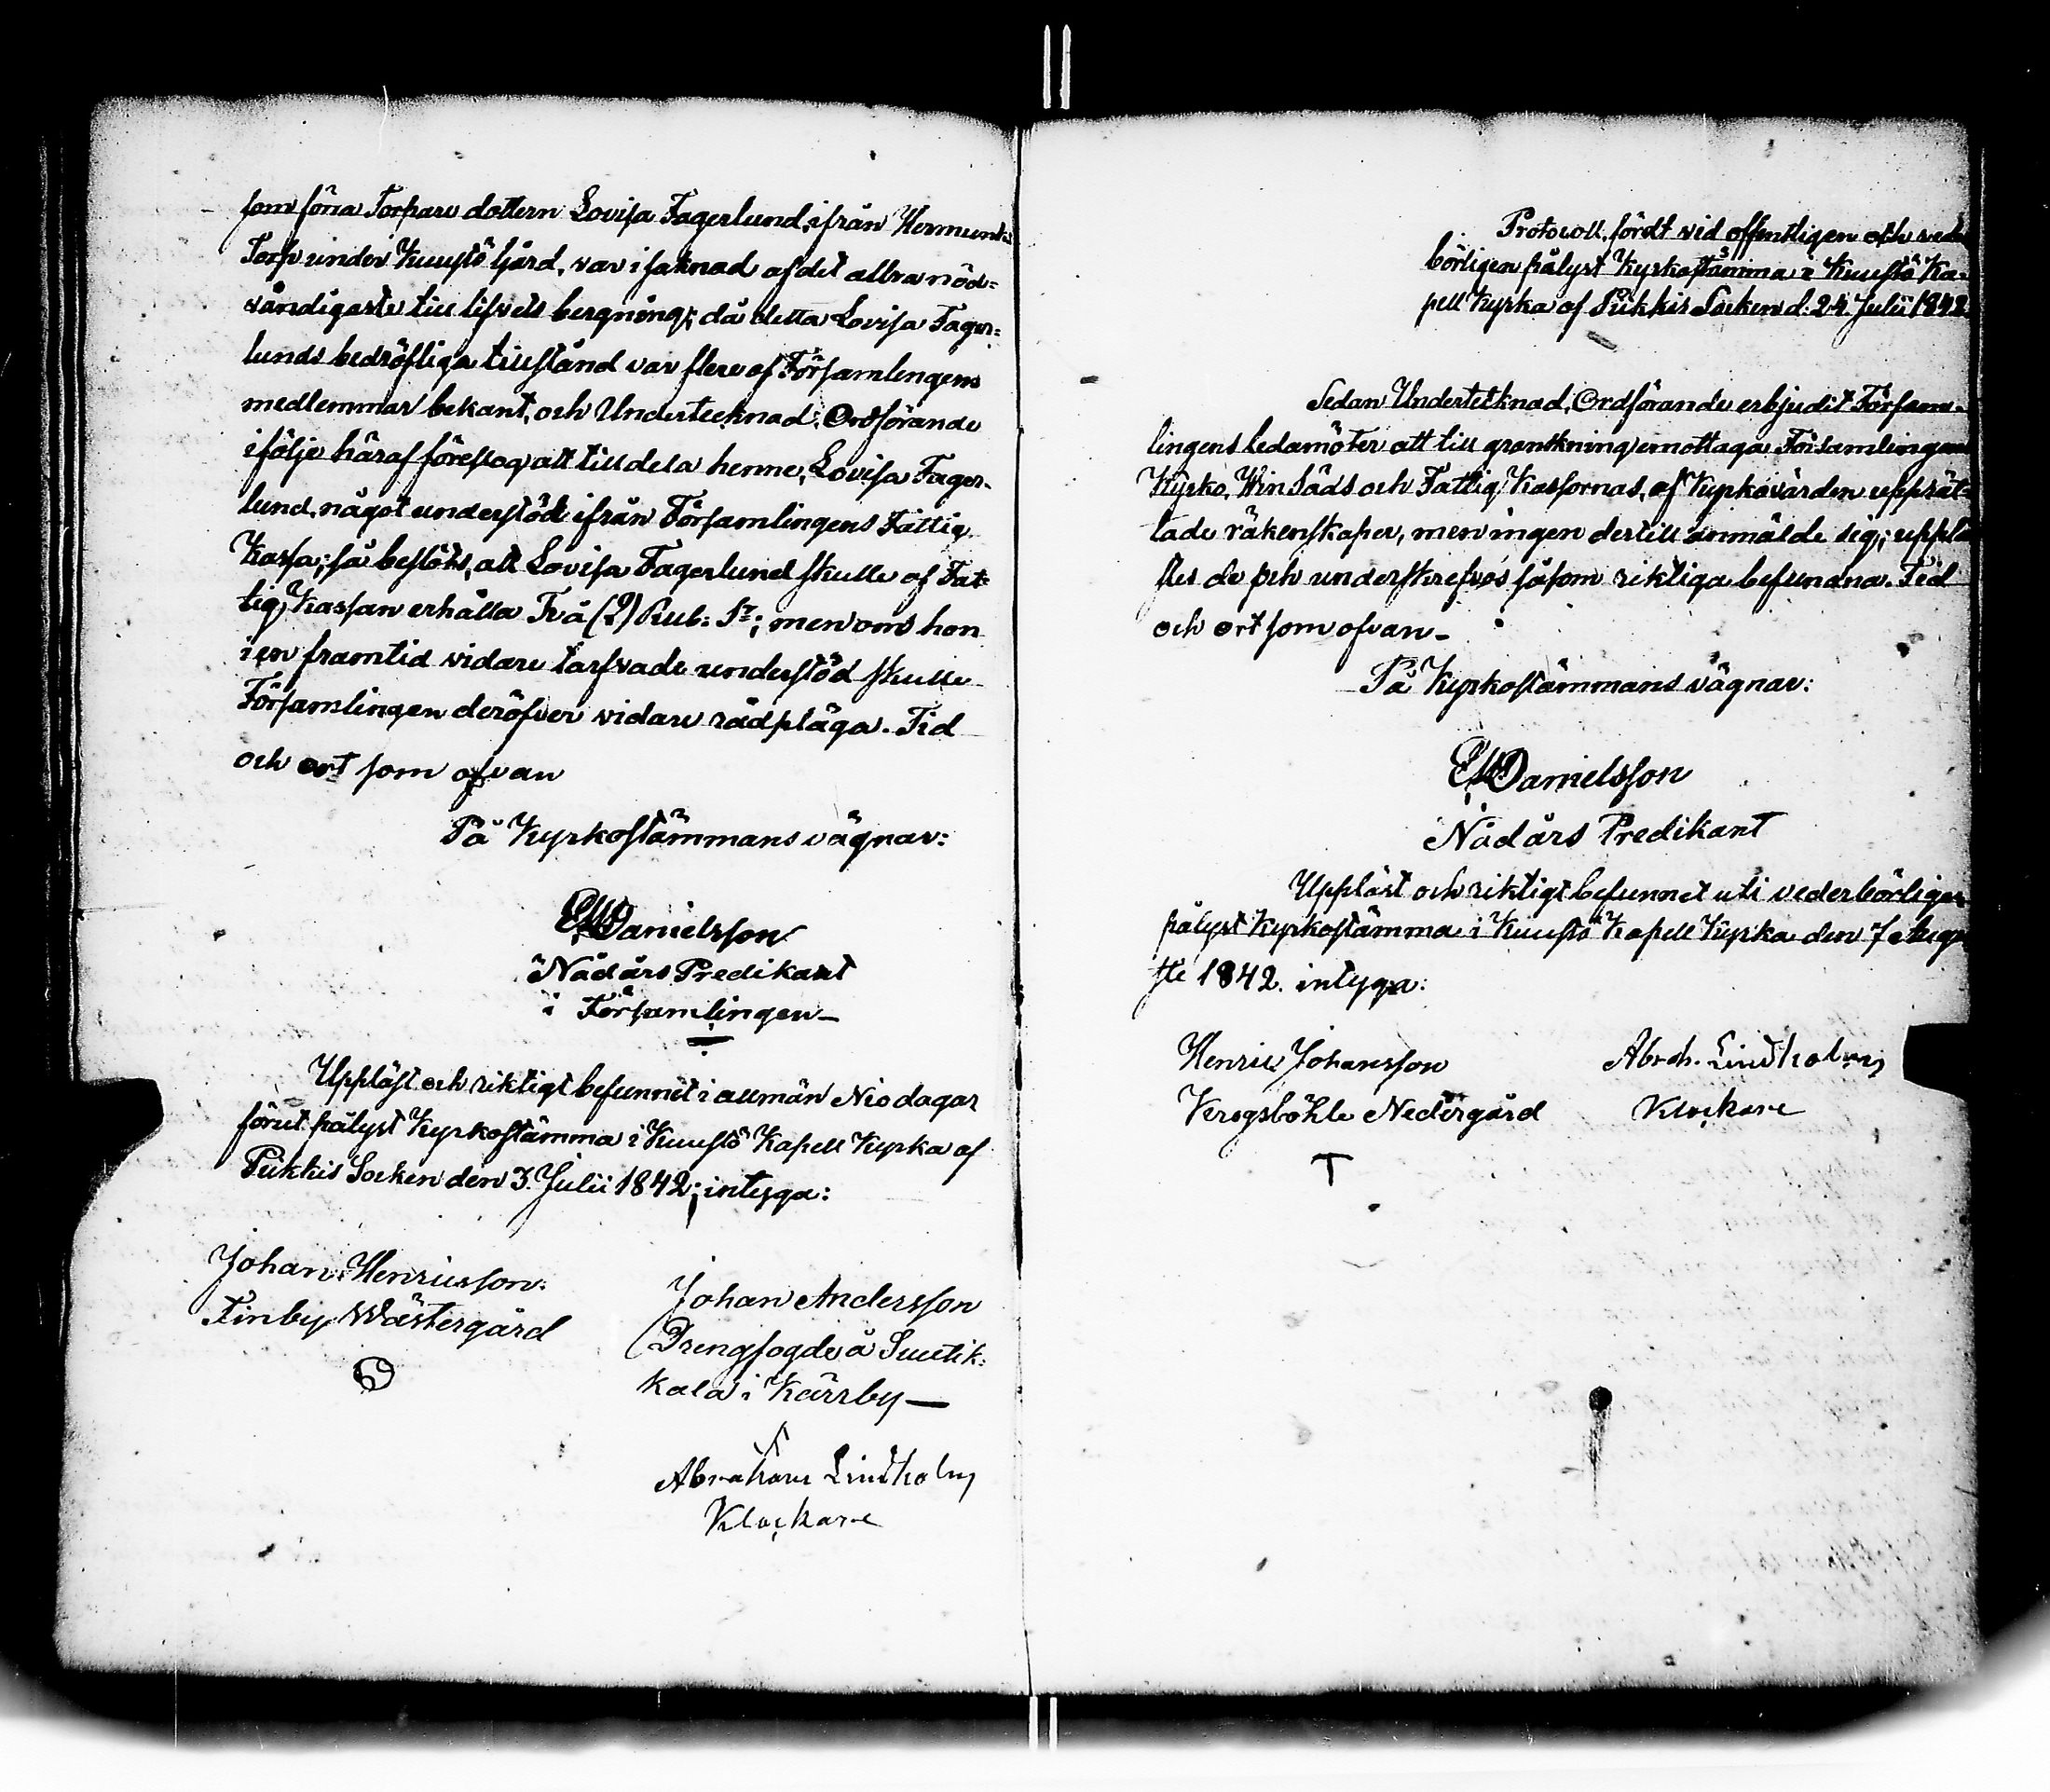 som förra Torpare dottern Lovisa Fagerlund, ifrån Hermunds
Torp under Kuustö Gård, var i saknad af det allra nöd=
vändigaste till lifvets bergning; då detta Lovisa Fager=
lunds bedröfliga tillstånd var flere af Församlingens
medlemmar bekant, och Undertecknad, Ordförande
i följe häraf föreslog att tilldela henne, Lovisa Fager-
lund, något understöd ifrån Församlingens Fattig
Kassa; så beslöts, att Lovisa Fagerlund skulle af Fat=
tig, Kassan erhålla Två (2) Rub: Sr; men om hon
i en framtid vidare tarfvade understöd skulle
Församlingen deröfver vidare rådpläga. Tid
och ort som ofvan
På Kyrkostämmans vägnar:
Danielsson
Nådårs Predikant
i Församlingen
Uppläst och riktigt befunnit i allmän Nio dagar
förut pålyst Kyrkostämma i Kuustö Kapell Kyrka af
Pikkis Socken den 3. Julii 1842; intyga:
Johan Henricsson.
Finby Wästergård
Johan Andersson
Drengfogde å Suutik=
kala i Kärrby
Abraham Lindholm
Klockare
Protocoll, fördt vid offentligen och veder
börligen pålyst Kyrkostämma i Kuustö Ka=
pell Kyrka af Pikkis Socken d: 24 Julii 1842.
Sedan Undertecknad, Ordförande erbjudit Försam-
lingens ledamöter att till granskning emottaga Församlingens
Kyrko, Win Säds och Fattig, Kassornas, af Kyrkovärden upprät=
tade räkenskaper, men ingen dertill anmälde sig; upplä
stes de och underskrefvos såsom riktiga befundna. Tid
och ort som ofvan
På Kyrkostämmans vägnar:
Danielsson
Nådårs Predikant
Uppläst och riktigt befunnet uti vederbörligen
pålyst Kyrkostämma i Kuustö Kapell Kyrka den 7 Augu
sti 1842. intyga:
Henric Johansson
Krogsböhle Nedergård
T
Abrah. Lindholm
Klockare